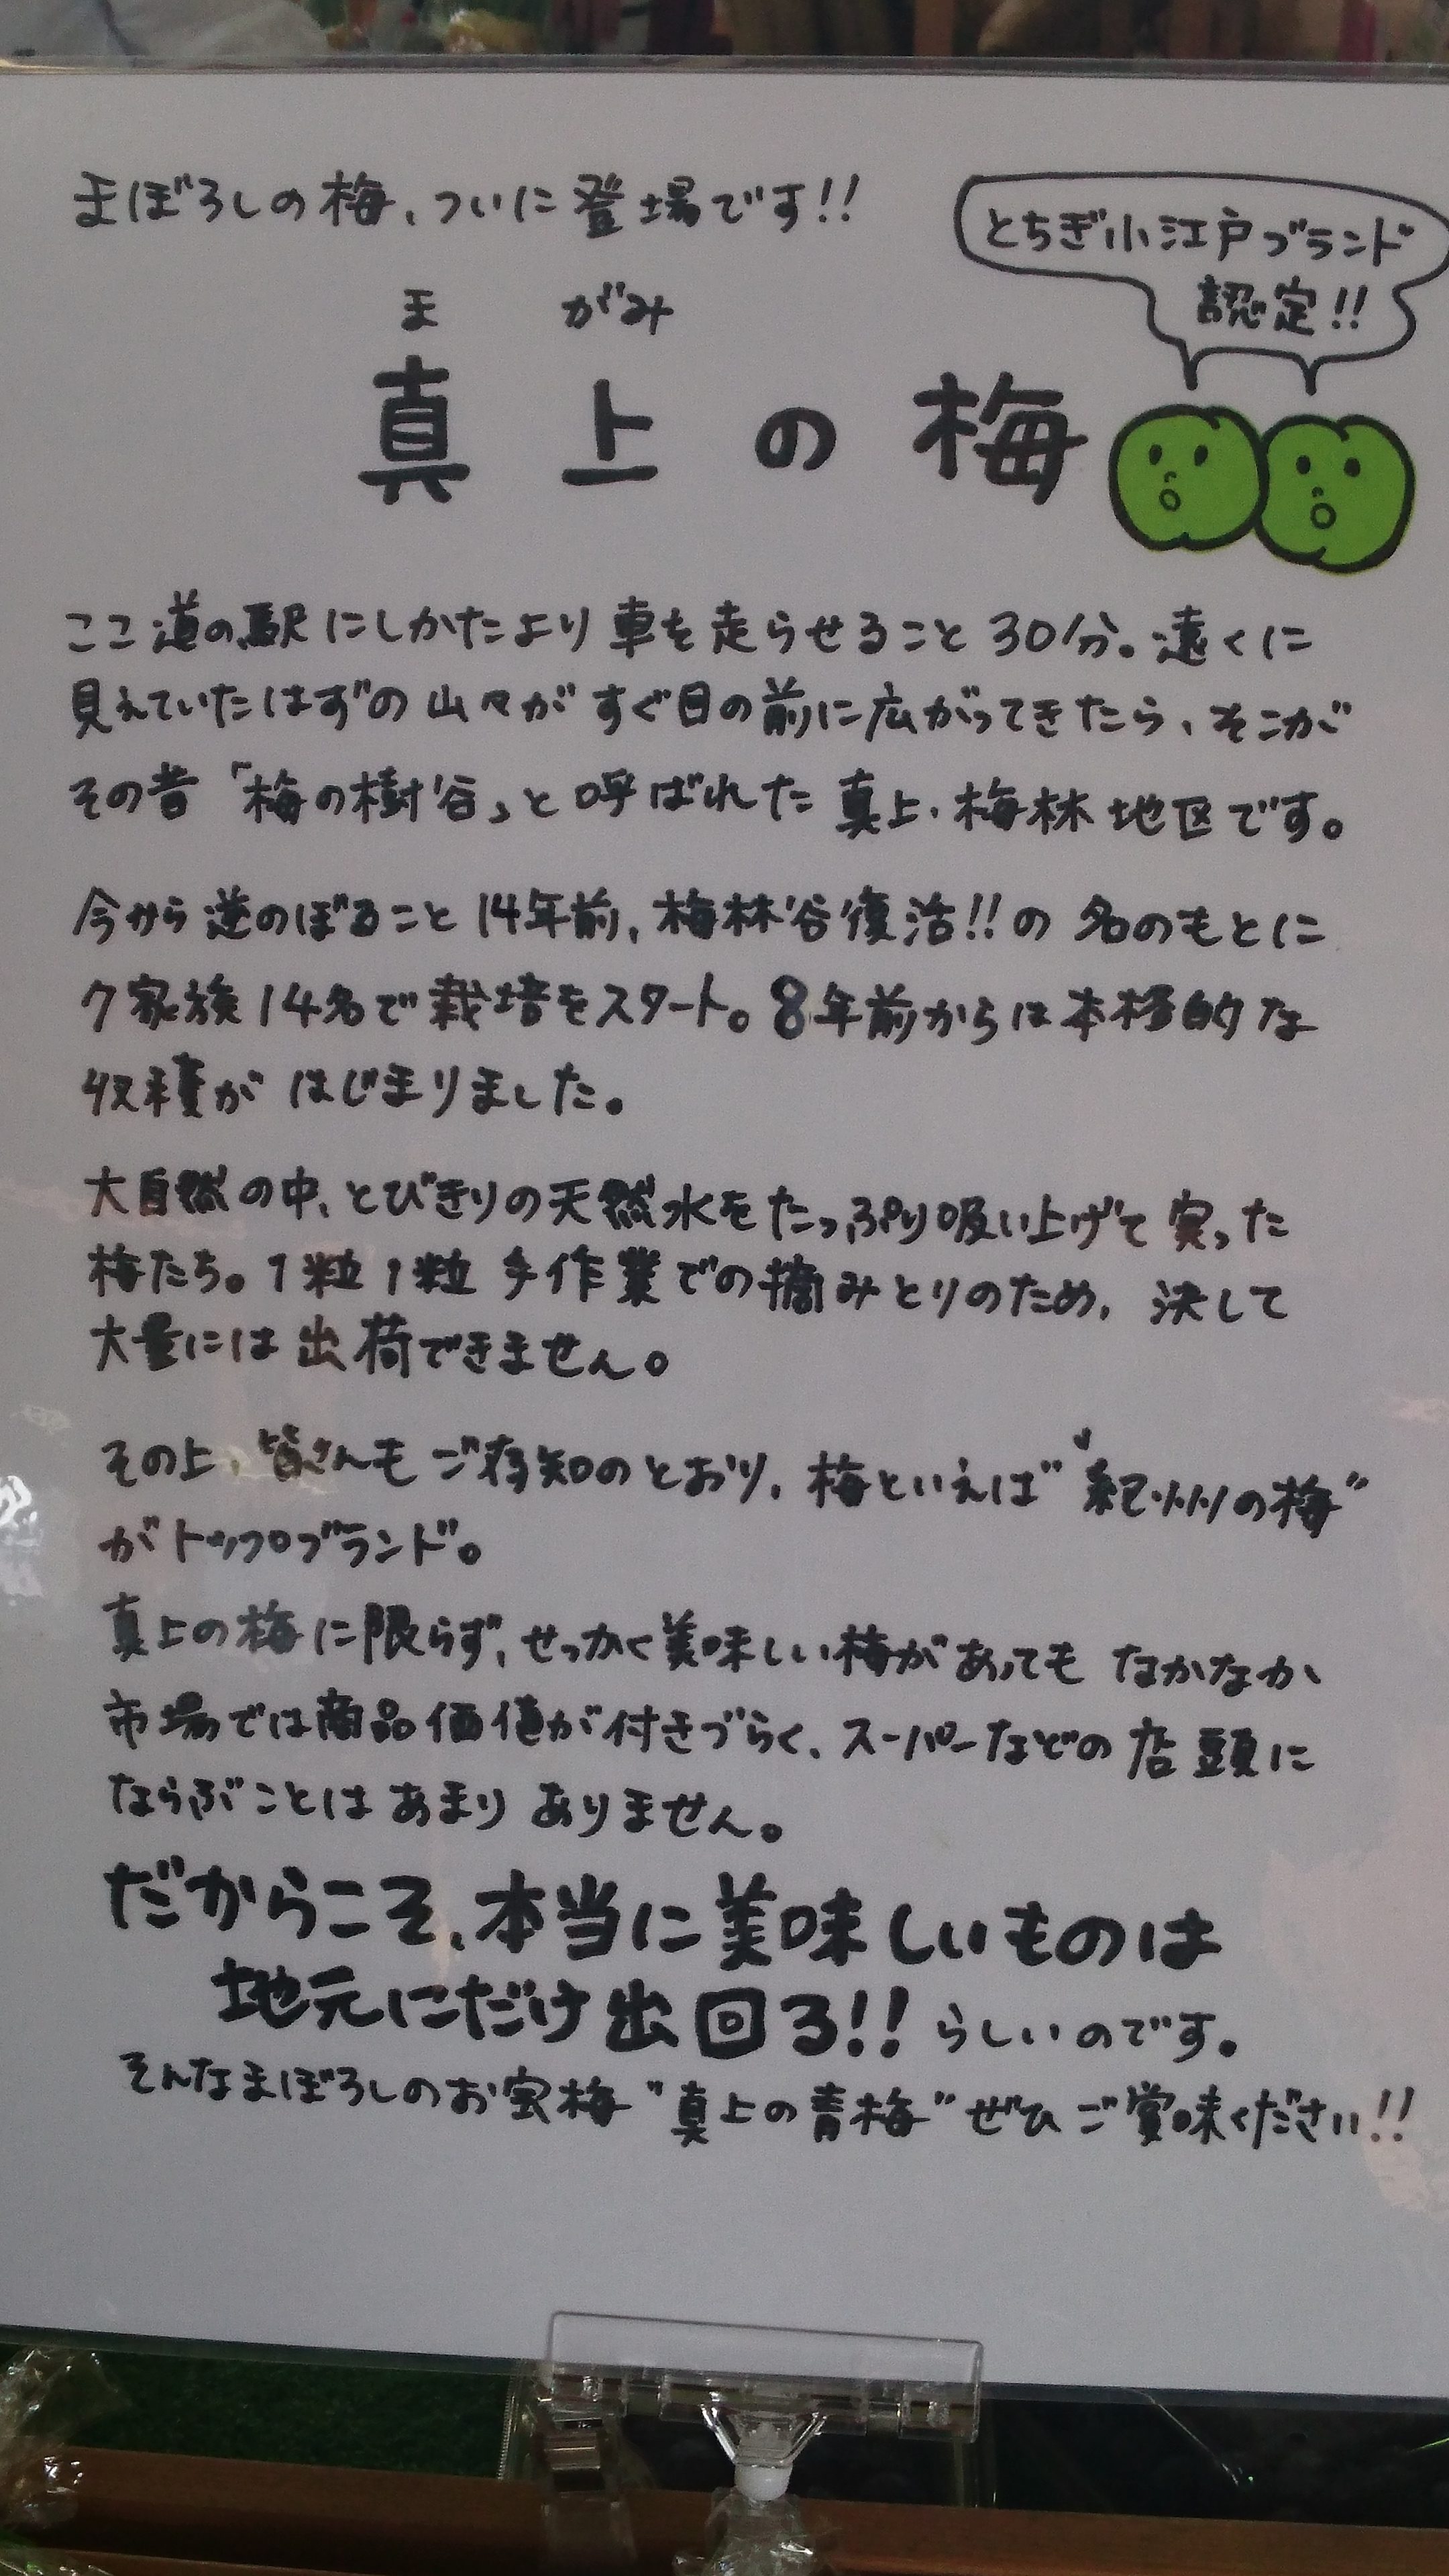 まぼろしの梅、ついに登場です!!
とちぎ小江戸ブランド
認定!!
ま がみ
真上の梅
ここ道の駅にしかたより車を走らせること30分。遠くに
見えていたはずの山々がすぐ目の前に広がってきたら、そこが
その昔「梅の樹谷」と呼ばれた真上・梅林地区です。
今から逆のぼること14年前、梅林谷復活!!の名のもとに
7家族14名で栽培をスタート。8年前からは本格的な
収穫がはじまりました。
大自然の中、とびきりの天然水をたっぷり吸い上げて実った
梅たち。1粒1粒手作業での摘みとりのため、決して
大量には出荷できません。
その上、皆さんもご存知のとおり、梅といえば"紀州の梅"
がトップブランド。
真上の梅に限らず、せっかく美味しい梅があってもなかなか
市場では商品価値が付きづらく、スーパーなどの店頭に
ならぶことはあまりありません。
だからこそ、本当に美味しいものは
地元にだけ出回る!!らしいのです。
そんなまぼろしのお宝梅"真上の青梅"ぜひご賞味ください!!